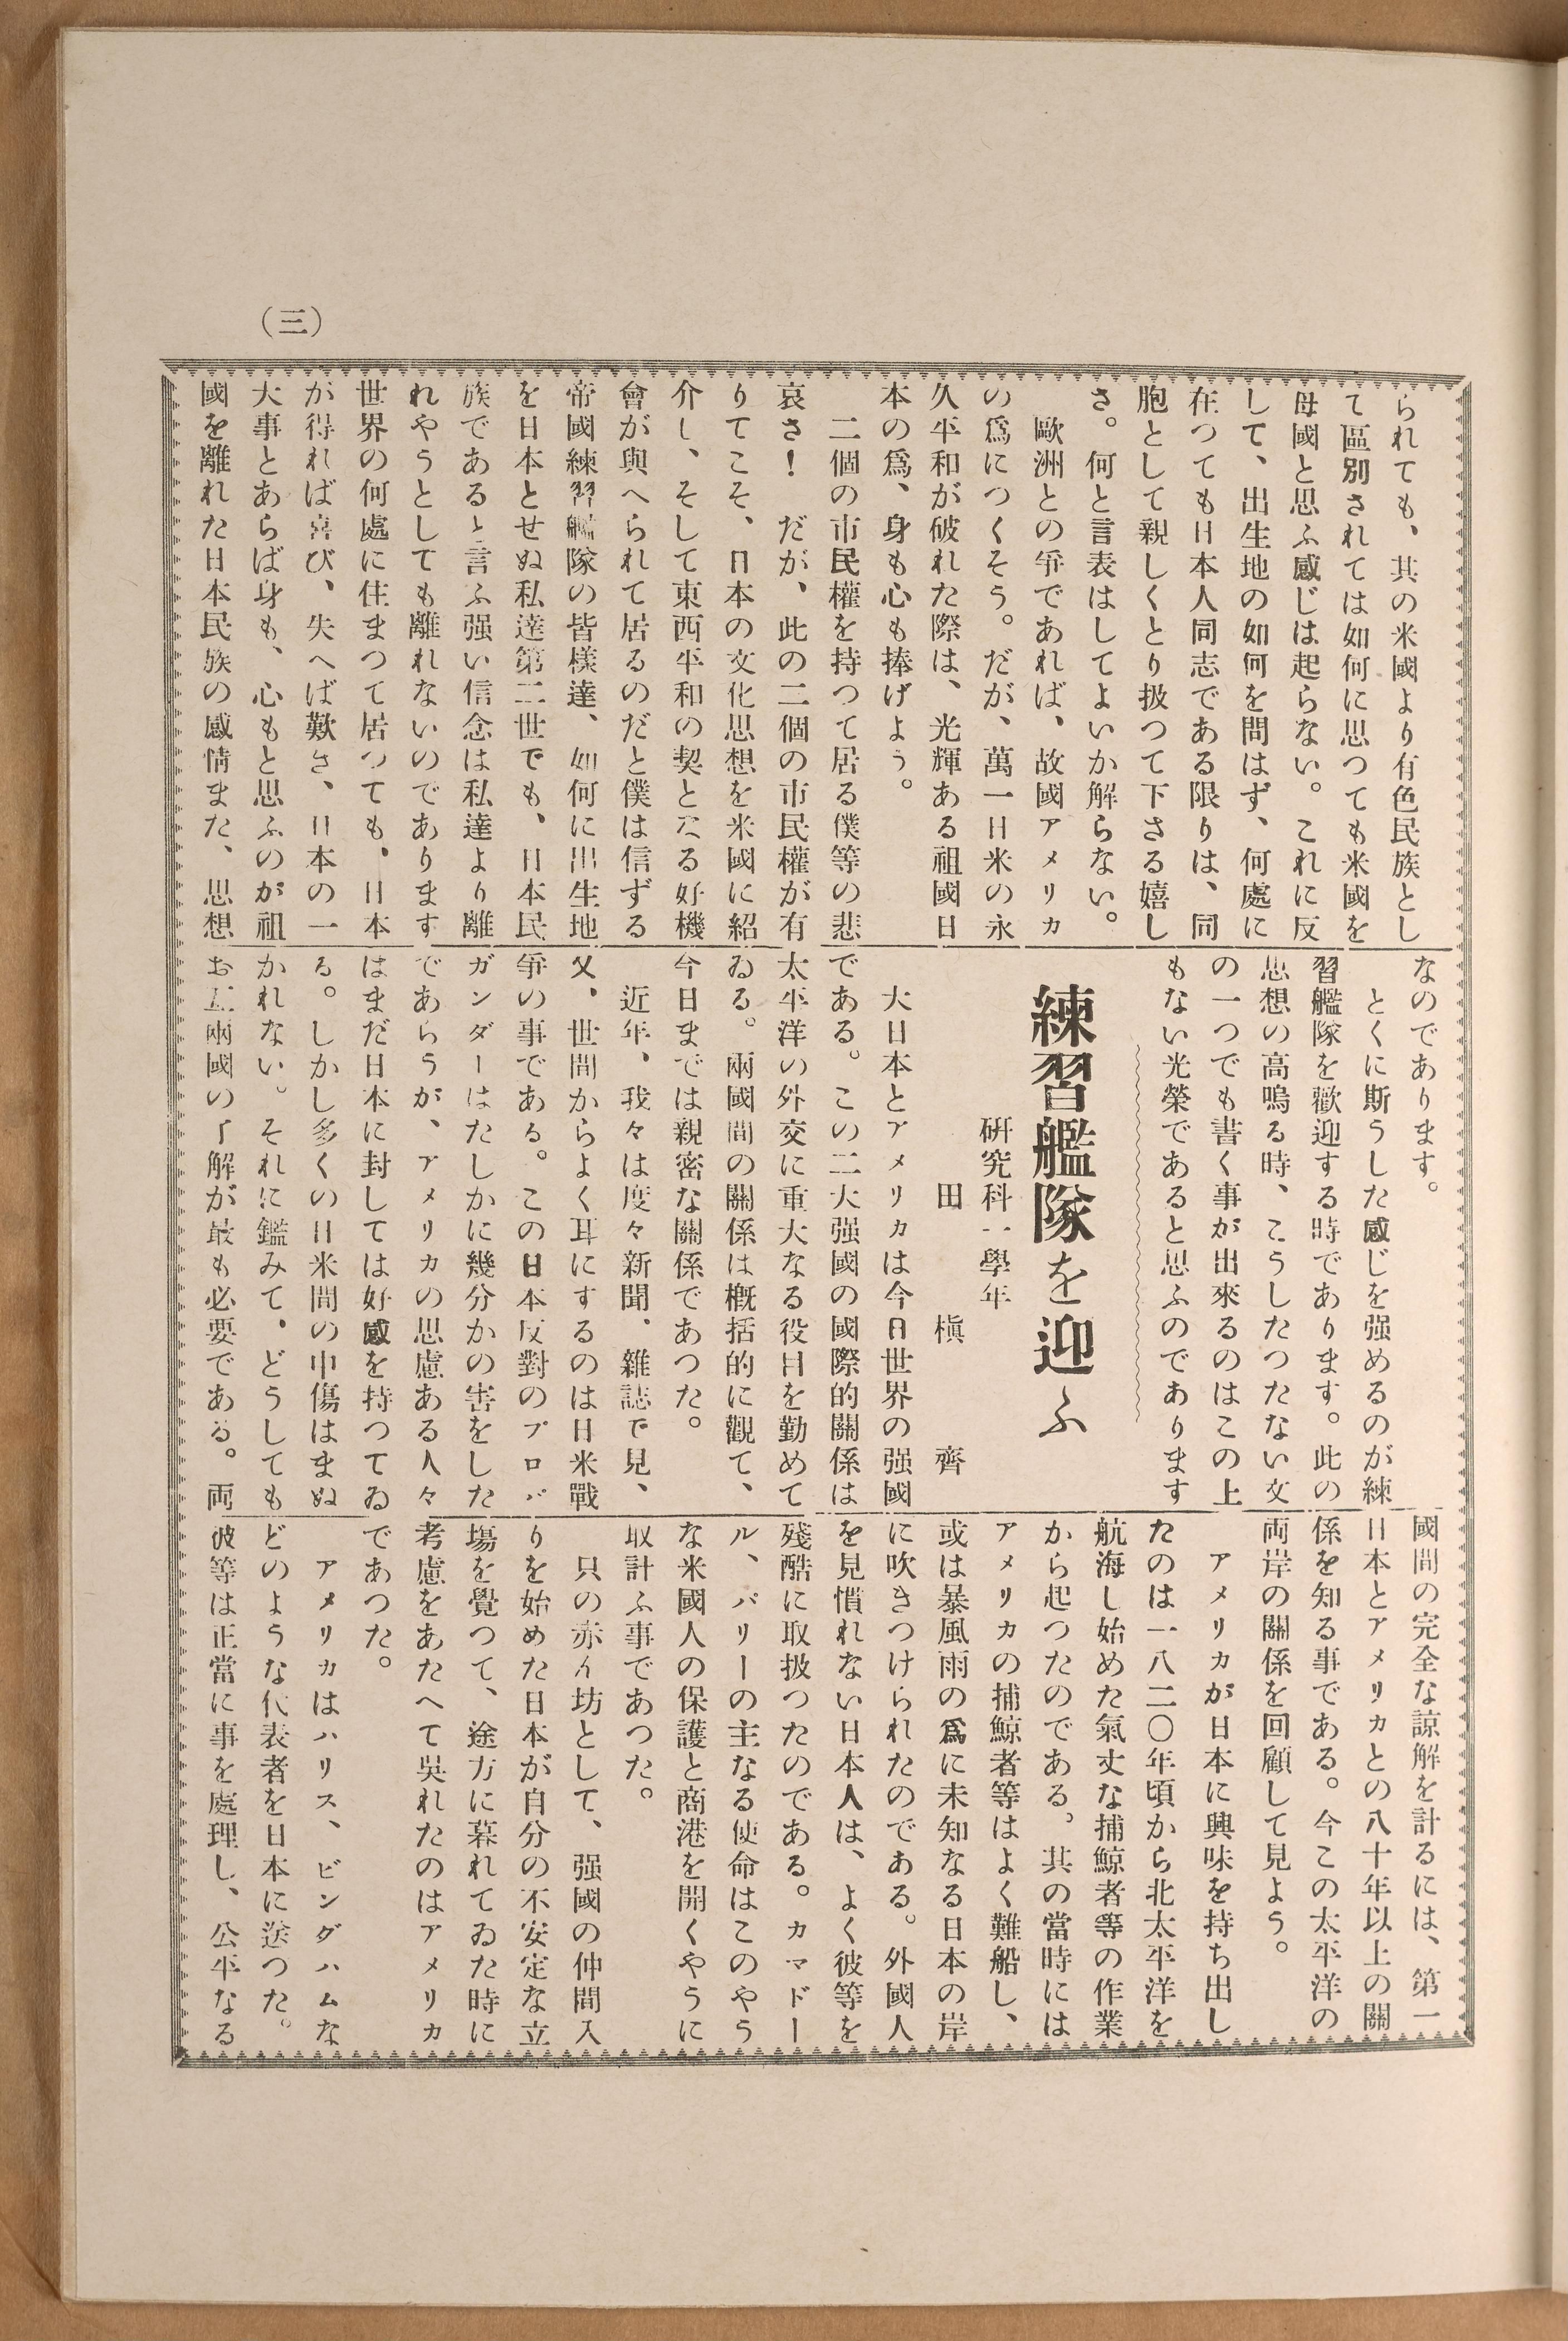 (三)
られても、其の米國より有色民族とし
て區別されては如何に思つても米國を
母國と思ふ感じは起らない。これに反
して、出生地の如何を問はず、何處に
在つても日本人同志である限りは、同
胞として親しくとり扱つて下さる嬉し
さ。何と言表はしてよいか解らない。
歐洲との爭であれば、故國アメリカ
の爲につくそう。だが、萬一日米の永
久平和が破れた際は、光輝ある祖國日
本の爲、身も心も捧げよう。
二個の市民權を持つて居る僕等の悲
哀さ！だが、此の二個の市民權が有
りてこそ、日本の文化思想を米國に紹
介し、そして東西平和の契となる好機
會が與へられて居るのだと僕は信ずる
帝國練習艦隊の皆樣達、如何に出生地
を日本とせぬ私達第二世でも、日本民
族であると言ふ强い信念は私達より離
れやうとしても離れないのであります
世界の何處に住まつて居つても、日本
が得れば喜び、失へば歎き、日本の一
大事とあらば身も、心もと思ふのが祖
國を離れた日本民族の感情また、思想
なのであります。
とくに斯うした感じを强めるのが練
習艦隊を歡迎する時であります。此の
思想の高鳴る時、こうしたつたない文
の一つでも書く事が出來るのはこの上
もない光榮であると思ふのであります
練習艦隊を迎ふ
硏究科一學年
田 槇 齊
大日本とアメリカは今日世界の强國
である。この二大强國の國際的關係は
太平洋の外交に重大なる役目を勤めて
ゐる。兩國間の關係は概括的に觀て、
今日までは親密な關係であつた。
近年、我々は度々新聞、雜誌で見、
又、世間からよく耳にするのは日米戰
爭の事である。この日本反對のプロバ
ガンダーはたしかに幾分かの害をした
であらうが、アメリカの思慮ある人々
はまだ日本に封しては好感を持つてゐ
る。しかし多くの日米間の中傷はまぬ
かれない。それに鑑みて、どうしても
お互兩國の了解が最も必要である。両
國間の完全な諒解を計るには、第一
日本とアメリカとの八十年以上の關
係を知る事である。今この太平洋の
両岸の關係を回顧して見よう。
アメリカが日本に興味を持ち出し
たのは一八二〇年頃から北太平洋を
航海し始めた氣丈な捕鯨者等の作業
から起つたのである。其の當時には
アメリカの捕鯨者等はよく難船し、
或は暴風雨の爲に未知なる日本の岸
に吹きつけられたのである。外國人
を見慣れない日本人は、よく彼等を
殘酷に取扱つたのである。カマドー
ル、バリーの主なる使命はこのやう
な米國人の保護と商港を開くやうに
取計ふ事であつた。
只の赤ん坊として、强國の仲間入
りを始めた日本が自分の不安定な立
塲を覺つて、途方に暮れてゐた時に
考慮をあたへて吳れたのはアメリカ
であつた。
アメリカはハリス、ビングハムな
どのような代表者を日本に送つた。
彼等は正當に事を處理し、公平なる